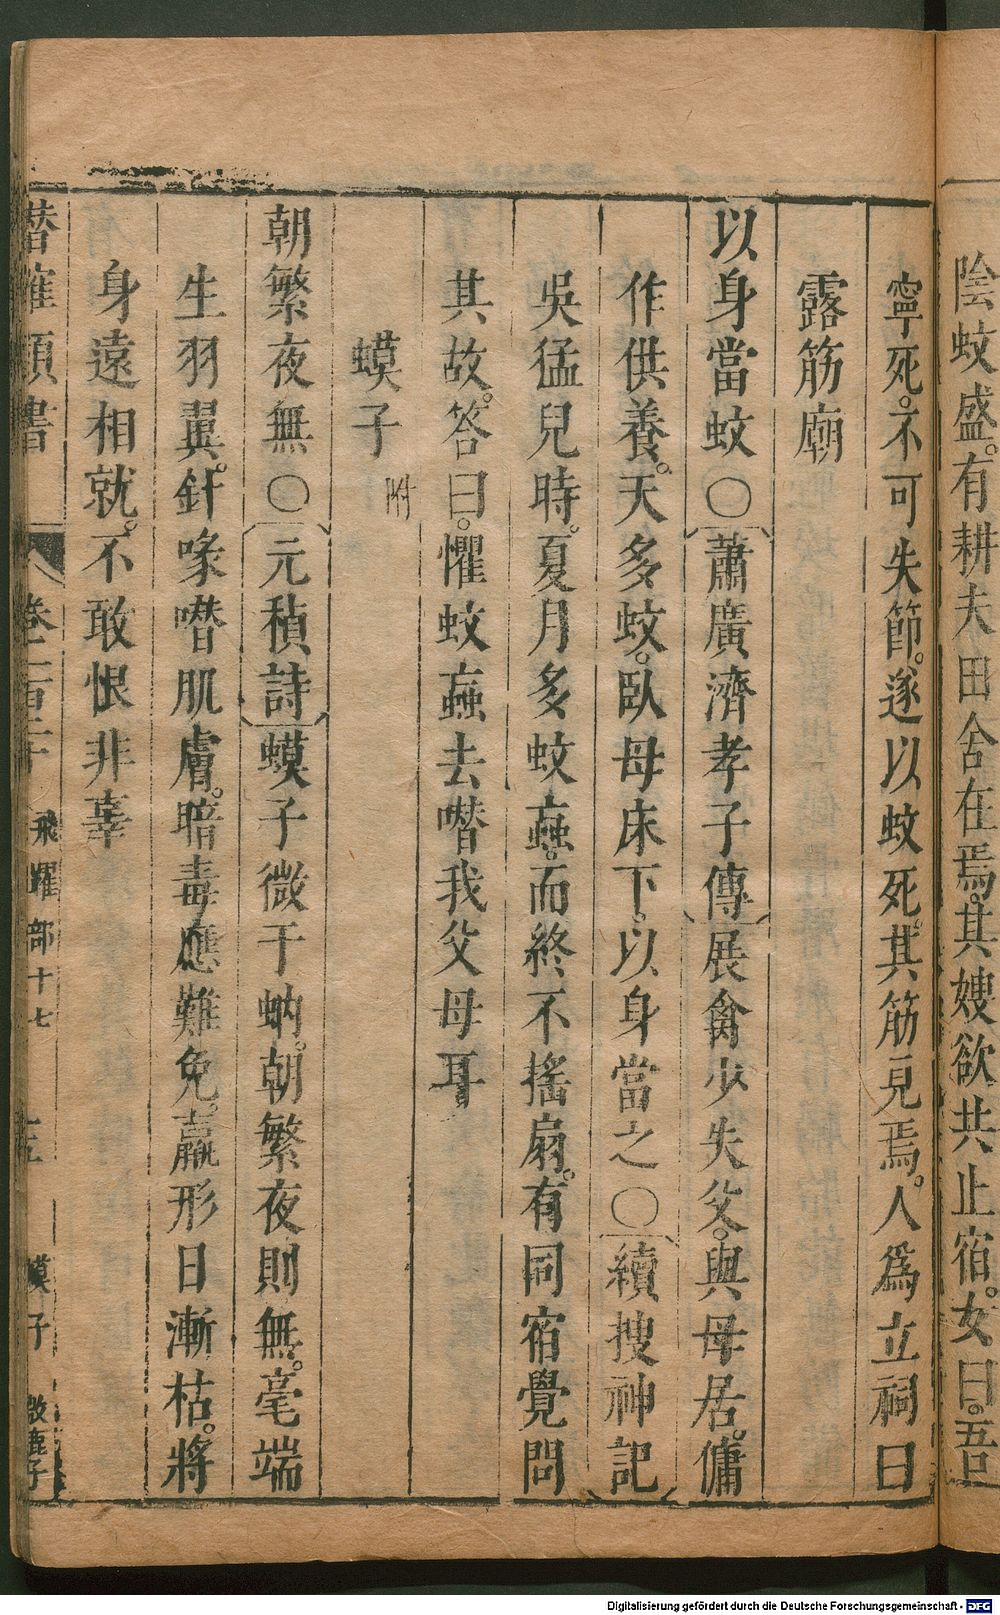 陰蚊盛。有耕夫田舍在焉。其嫂欲共止宿。女曰。吾
寧死。不可失節。遂以蚊死。其筋見焉。人爲立祠曰
露筋廟
以身當蚊〇蕭廣濟孝子傳展禽少失父。與母居。傭
作供養。天多蚊。臥母床下。以身當之〇續搜神記
吳猛兒時。夏月多蚊蝱。而終不搖扇。有同宿覺問
其故。答曰。懼蚊蝱去噆我父母耳
蟆子附
朝繁夜無〇元稹詩蟆子微于蚋。朝繁夜則無。毫端
生羽翼。針喙噆肌膚。暗毒應難免。羸形日漸枯。將
身遠相就。不敢恨非辜
潛確類書 卷一百二十 飛躍部十七 蟆子
Digitalisierung gefördert durch die Deutsche Forschungsgemeinschaft - DFG